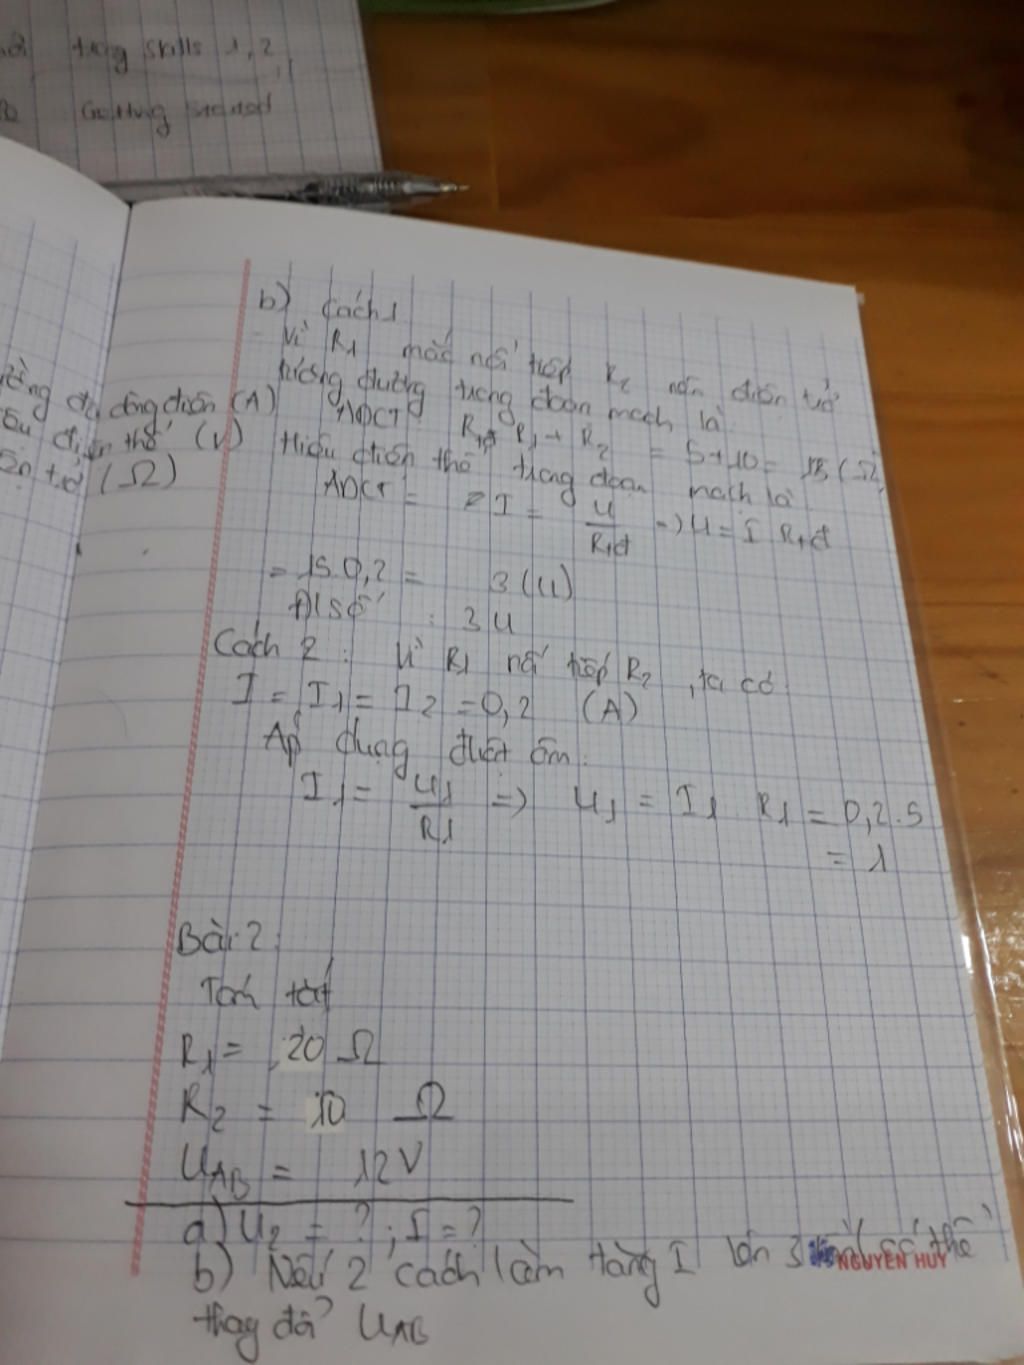 trong skills 1, 2
Getting started
dòng điện (A)
điện thế (V)
(Ω)
b) Cách 1
- Vì R1 mắc nối tiếp R2 nên điện trở
tương đương trong đoạn mạch là
ADCT Rtđ = R1 + R2 = 5+10 = 15 (Ω)
Hiệu điện thế trong đoạn mạch là
ADCT = I = U/Rtđ => U = I Rtđ
= 15.0,2 = 3 (U)
Đ/số : 3 U
Cách 2 : Vì R1 nối tiếp R2, ta có
I = I1 = I2 = 0,2 (A)
Áp dụng định ôm:
I1 = U1/R1 => U1 = I1 R1 = 0,2.5
= 1
Bài 2:
Tóm tắt
R1 = 20 Ω
R2 = 10 Ω
UAB = 12V
a) U2 = ? ; I = ?
b) Nêu 2 cách làm tăng I lên 3 lần có thể
NGUYEN HUY
thay đổi UAB